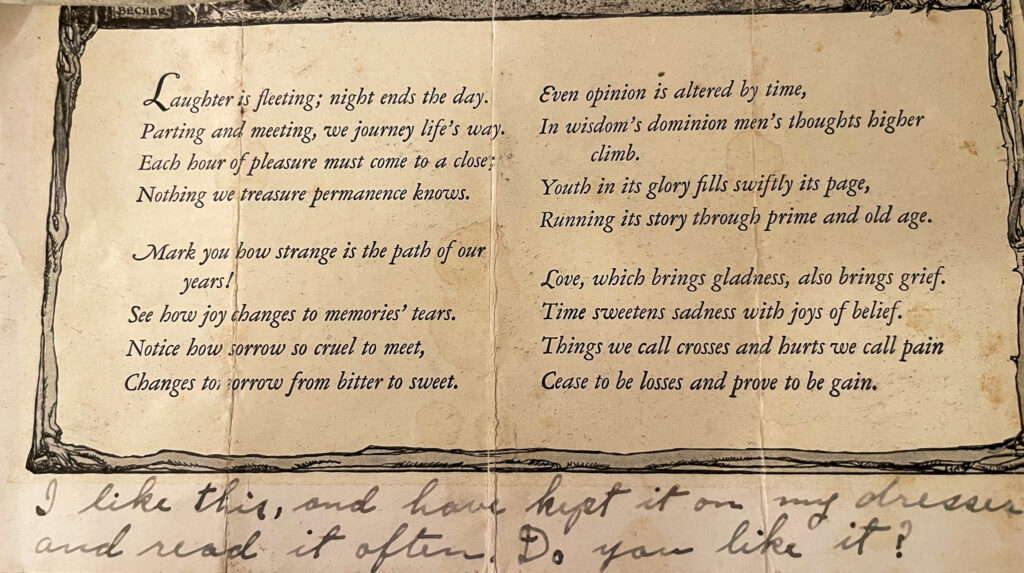 BECHER
Laughter is fleeting; night ends the day.
Parting and meeting, we journey life's way.
Each hour of pleasure must come to a close;
Nothing we treasure permanence knows.
Mark you how strange is the path of our
years!
See how joy changes to memories' tears.
Notice how sorrow so cruel to meet,
Changes from bitter to sweet.
Even opinion is altered by time,
In wisdom's dominion men's thoughts higher
climb.
Youth in its glory fills swiftly its page,
Running its story through prime and old age.
Love, which brings gladness, also brings grief.
Time sweetens sadness with joys of belief.
Things we call crosses and hurts we call pain
Cease to be losses and prove to be gain.
I like this, and have kept it on my dresser
and read it often. Do you like it?